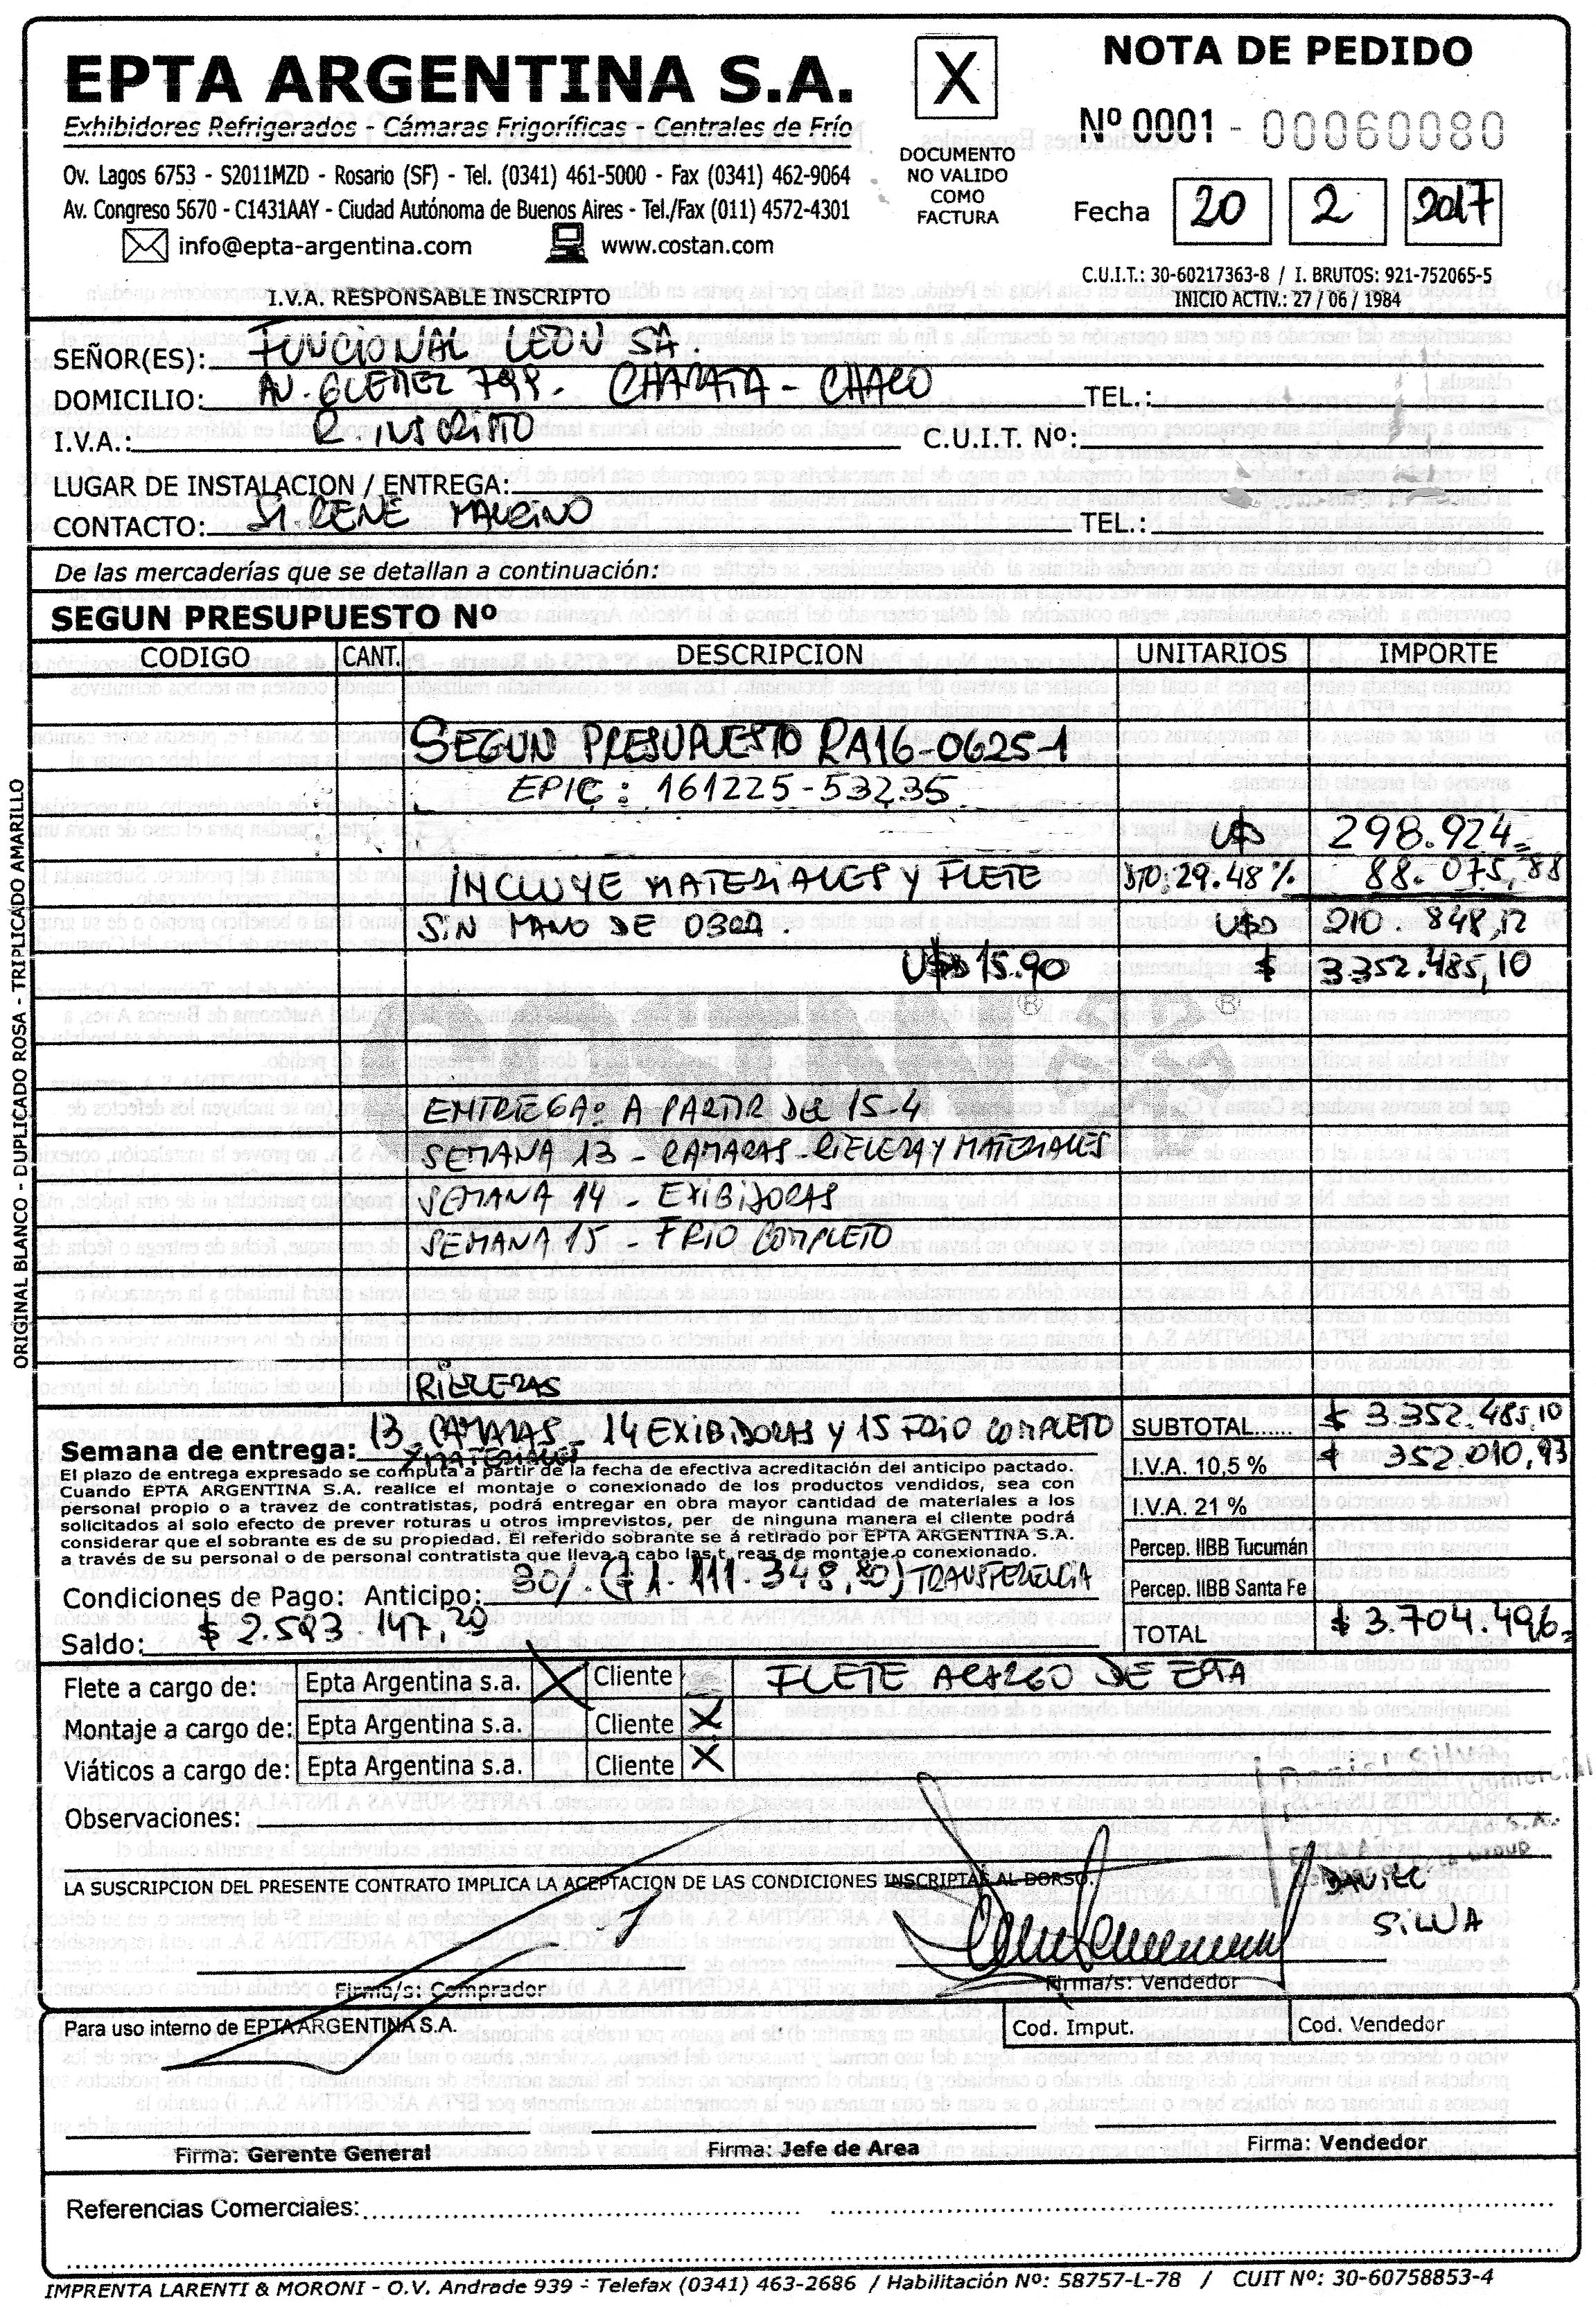 EPTA ARGENTINA S.A.
Exhibidores Refrigerados - Cámaras Frigoríficas - Centrales de Frío
Ov. Lagos 6753 - S2011MZD - Rosario (SF) - Tel. (0341) 461-5000 - Fax (0341) 462-9064
Av. Congreso 5670 - C1431AAY - Ciudad Autónoma de Buenos Aires - Tel./Fax (011) 4572-4301
info@epta-argentina.com www.costan.com
I.V.A. RESPONSABLE INSCRIPTO
X
DOCUMENTO
NO VALIDO
COMO
FACTURA
NOTA DE PEDIDO
Nº 0001 - 00060080
Fecha 20 2 2017
C.U.I.T.: 30-60217363-8 / I. BRUTOS: 921-752065-5
INICIO ACTIV.: 27 / 06 / 1984
SEÑOR(ES): FUNCIONAL LEON SA.
DOMICILIO: AV. 799. CHARATA - CHACO TEL.:
I.V.A.: R. INSCRIPTO C.U.I.T. Nº:
LUGAR DE INSTALACION / ENTREGA:
CONTACTO: Sr. RENE MAURINO TEL.:
De las mercaderías que se detallan a continuación:
SEGUN PRESUPUESTO Nº
CODIGO CANT. DESCRIPCION UNITARIOS IMPORTE
SEGUN PRESUPUESTO RA16-0625-1
EPIC: 161225-53235
U$D 298.924=
INCLUYE MATERIALES Y FLETE DTO: 29.48% 88.075,88
SIN MANO DE OBRA. U$D 210.848,12
U$D 15.90 $ 3.352.485,10
ENTREGA: A PARTIR DEL 15-4
SEMANA 13 - CAMARAS - RIELERA Y MATERIALES
SEMANA 14 - EXIBIDORAS
SEMANA 15 - FRIO COMPLETO
RIELERAS
Semana de entrega: 13 CAMARAS 14 EXIBIDORAS Y 15 FRIO COMPLETO
Y MATERIALES
El plazo de entrega expresado se computa a partir de la fecha de efectiva acreditación del anticipo pactado.
Cuando EPTA ARGENTINA S.A. realice el montaje o conexionado de los productos vendidos, sea con
personal propio o a travez de contratistas, podrá entregar en obra mayor cantidad de materiales a los
solicitados al solo efecto de prever roturas u otros imprevistos, per de ninguna manera el cliente podrá
considerar que el sobrante es de su propiedad. El referido sobrante se á retirado por EPTA ARGENTINA S.A.
a través de su personal o de personal contratista que lleva a cabo las t reas de montaje o conexionado.
Condiciones de Pago: Anticipo: 30%. ($ 1.111.348,80) TRANSFERENCIA
Saldo: $ 2.593.147,20
SUBTOTAL...... $ 3.352.485,10
I.V.A. 10,5 % $ 352.010,93
I.V.A. 21 %
Percep. IIBB Tucumán
Percep. IIBB Santa Fe
TOTAL $ 3.704.496=
Flete a cargo de: Epta Argentina s.a. X Cliente FLETE A CARGO DE EPTA
Montaje a cargo de: Epta Argentina s.a. Cliente X
Viáticos a cargo de: Epta Argentina s.a. Cliente X
Observaciones:
LA SUSCRIPCION DEL PRESENTE CONTRATO IMPLICA LA ACEPTACION DE LAS CONDICIONES INSCRIPTAS AL DORSO.
DANIEL
SILVA
Firma/s: Comprador Firma/s: Vendedor
Para uso interno de EPTA ARGENTINA S.A. Cod. Imput. Cod. Vendedor
Firma: Gerente General Firma: Jefe de Area Firma: Vendedor
Referencias Comerciales:
IMPRENTA LARENTI & MORONI - O.V. Andrade 939 - Telefax (0341) 463-2686 / Habilitación Nº: 58757-L-78 / CUIT Nº: 30-60758853-4
ORIGINAL BLANCO - DUPLICADO ROSA - TRIPLICADO AMARILLO